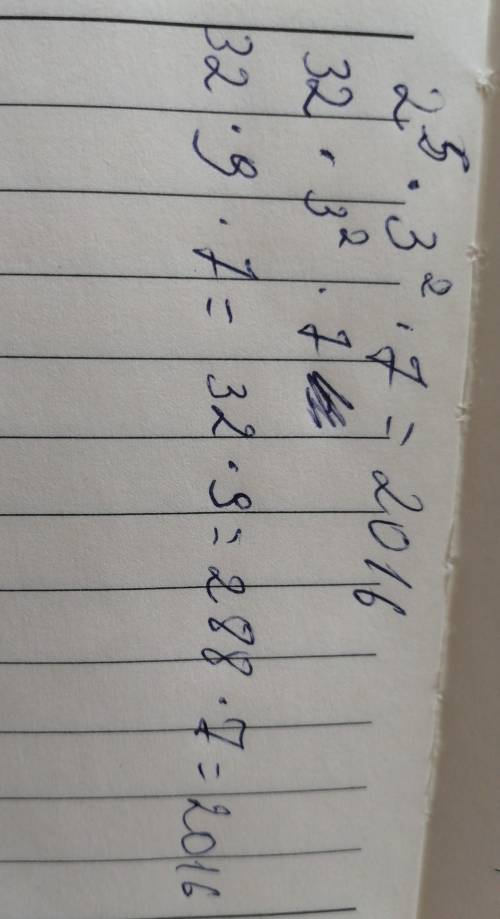 2⁵ · 3² · 7 = 2016
32 · 3² · 7
32 · 9 · 7 = 32 · 9 = 288 · 7 = 2016